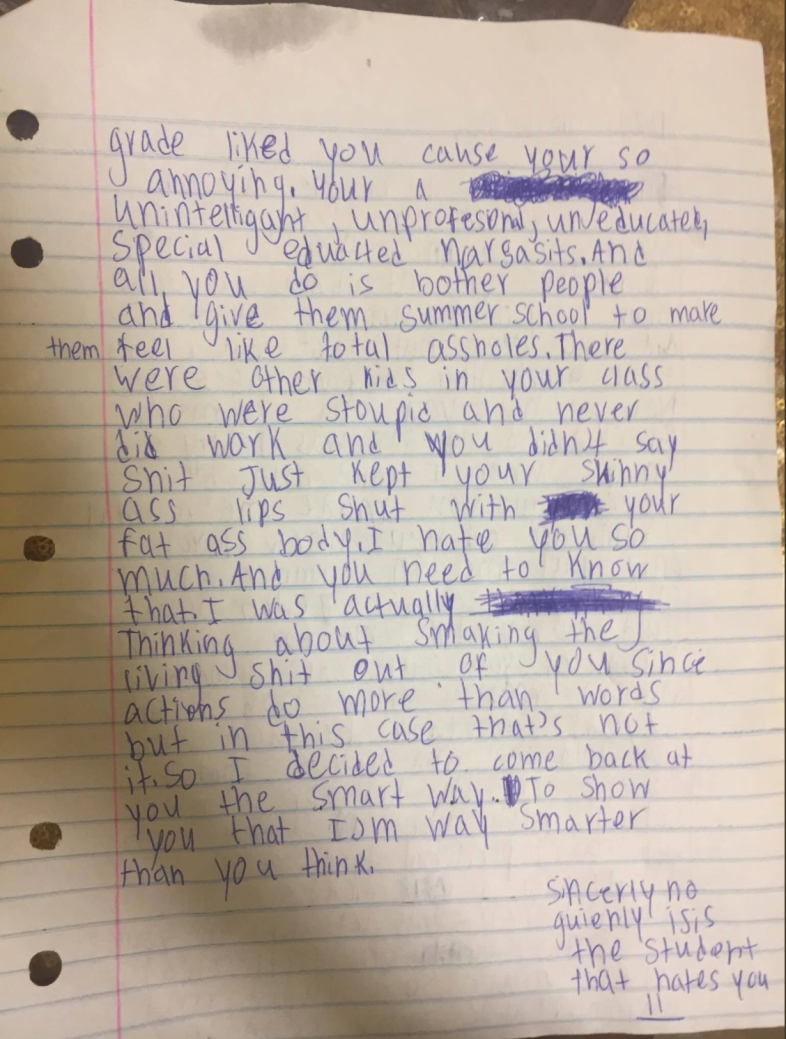 grade liked you cause your so
annoying. Your a
unintelligant, unprofesonal, un/educated,
Special eduacted nargasits. And
all you do is bother people
and give them summer school to make
them feel like total assholes. There
were other kids in your class
who were stoupid and never
did work and you didn't say
shit Just kept your skinny
ass lips shut with your
fat ass body. I hate you so
much. And you need to know
that. I was actually
Thinking about smaking the
living shit out of you since
actions do more than words
but in this case that's not
it. So I decided to come back at
you the smart way. To show
you that I'm way smarter
than you think.
sincerly no
quienly isis
the student
that hates you